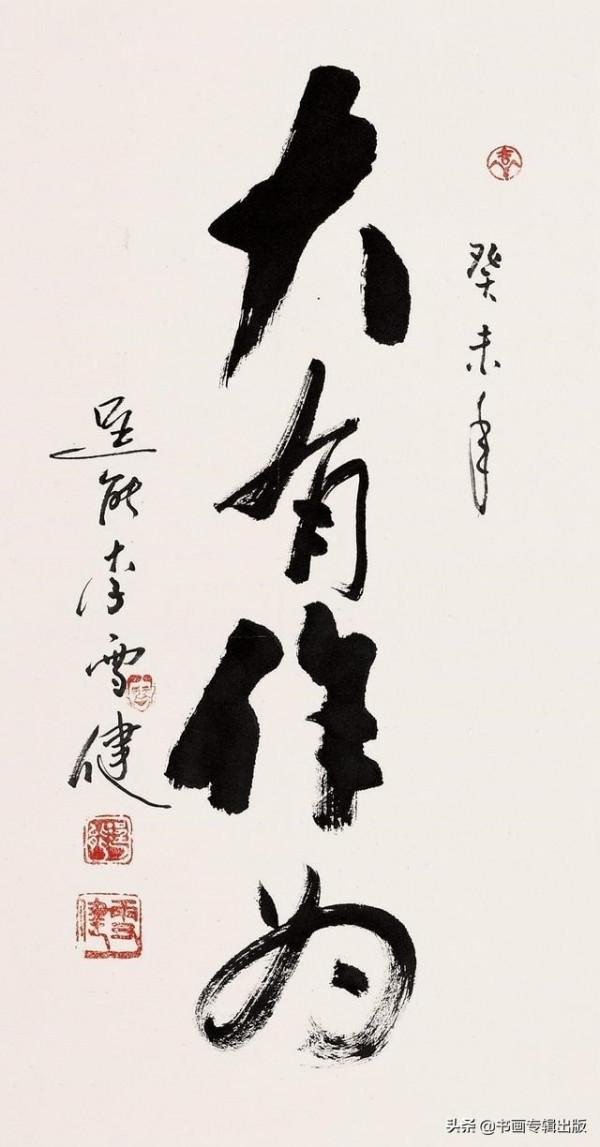 癸未年
大有作为
逞能李雪健
雪健
头条 @书画专辑出版